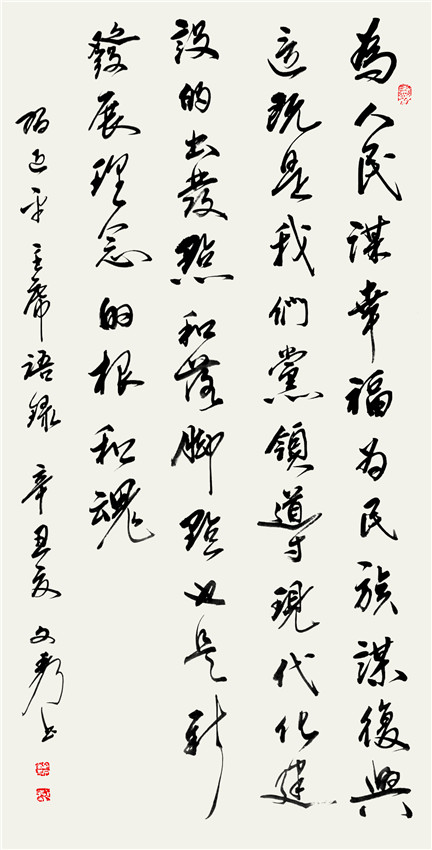 為人民謀幸福为民族謀復興
這既是我們黨領導現代化建
設的出發點和落脚點也是新
發展理念的根和魂
習近平主席語錄 辛丑夏 文书